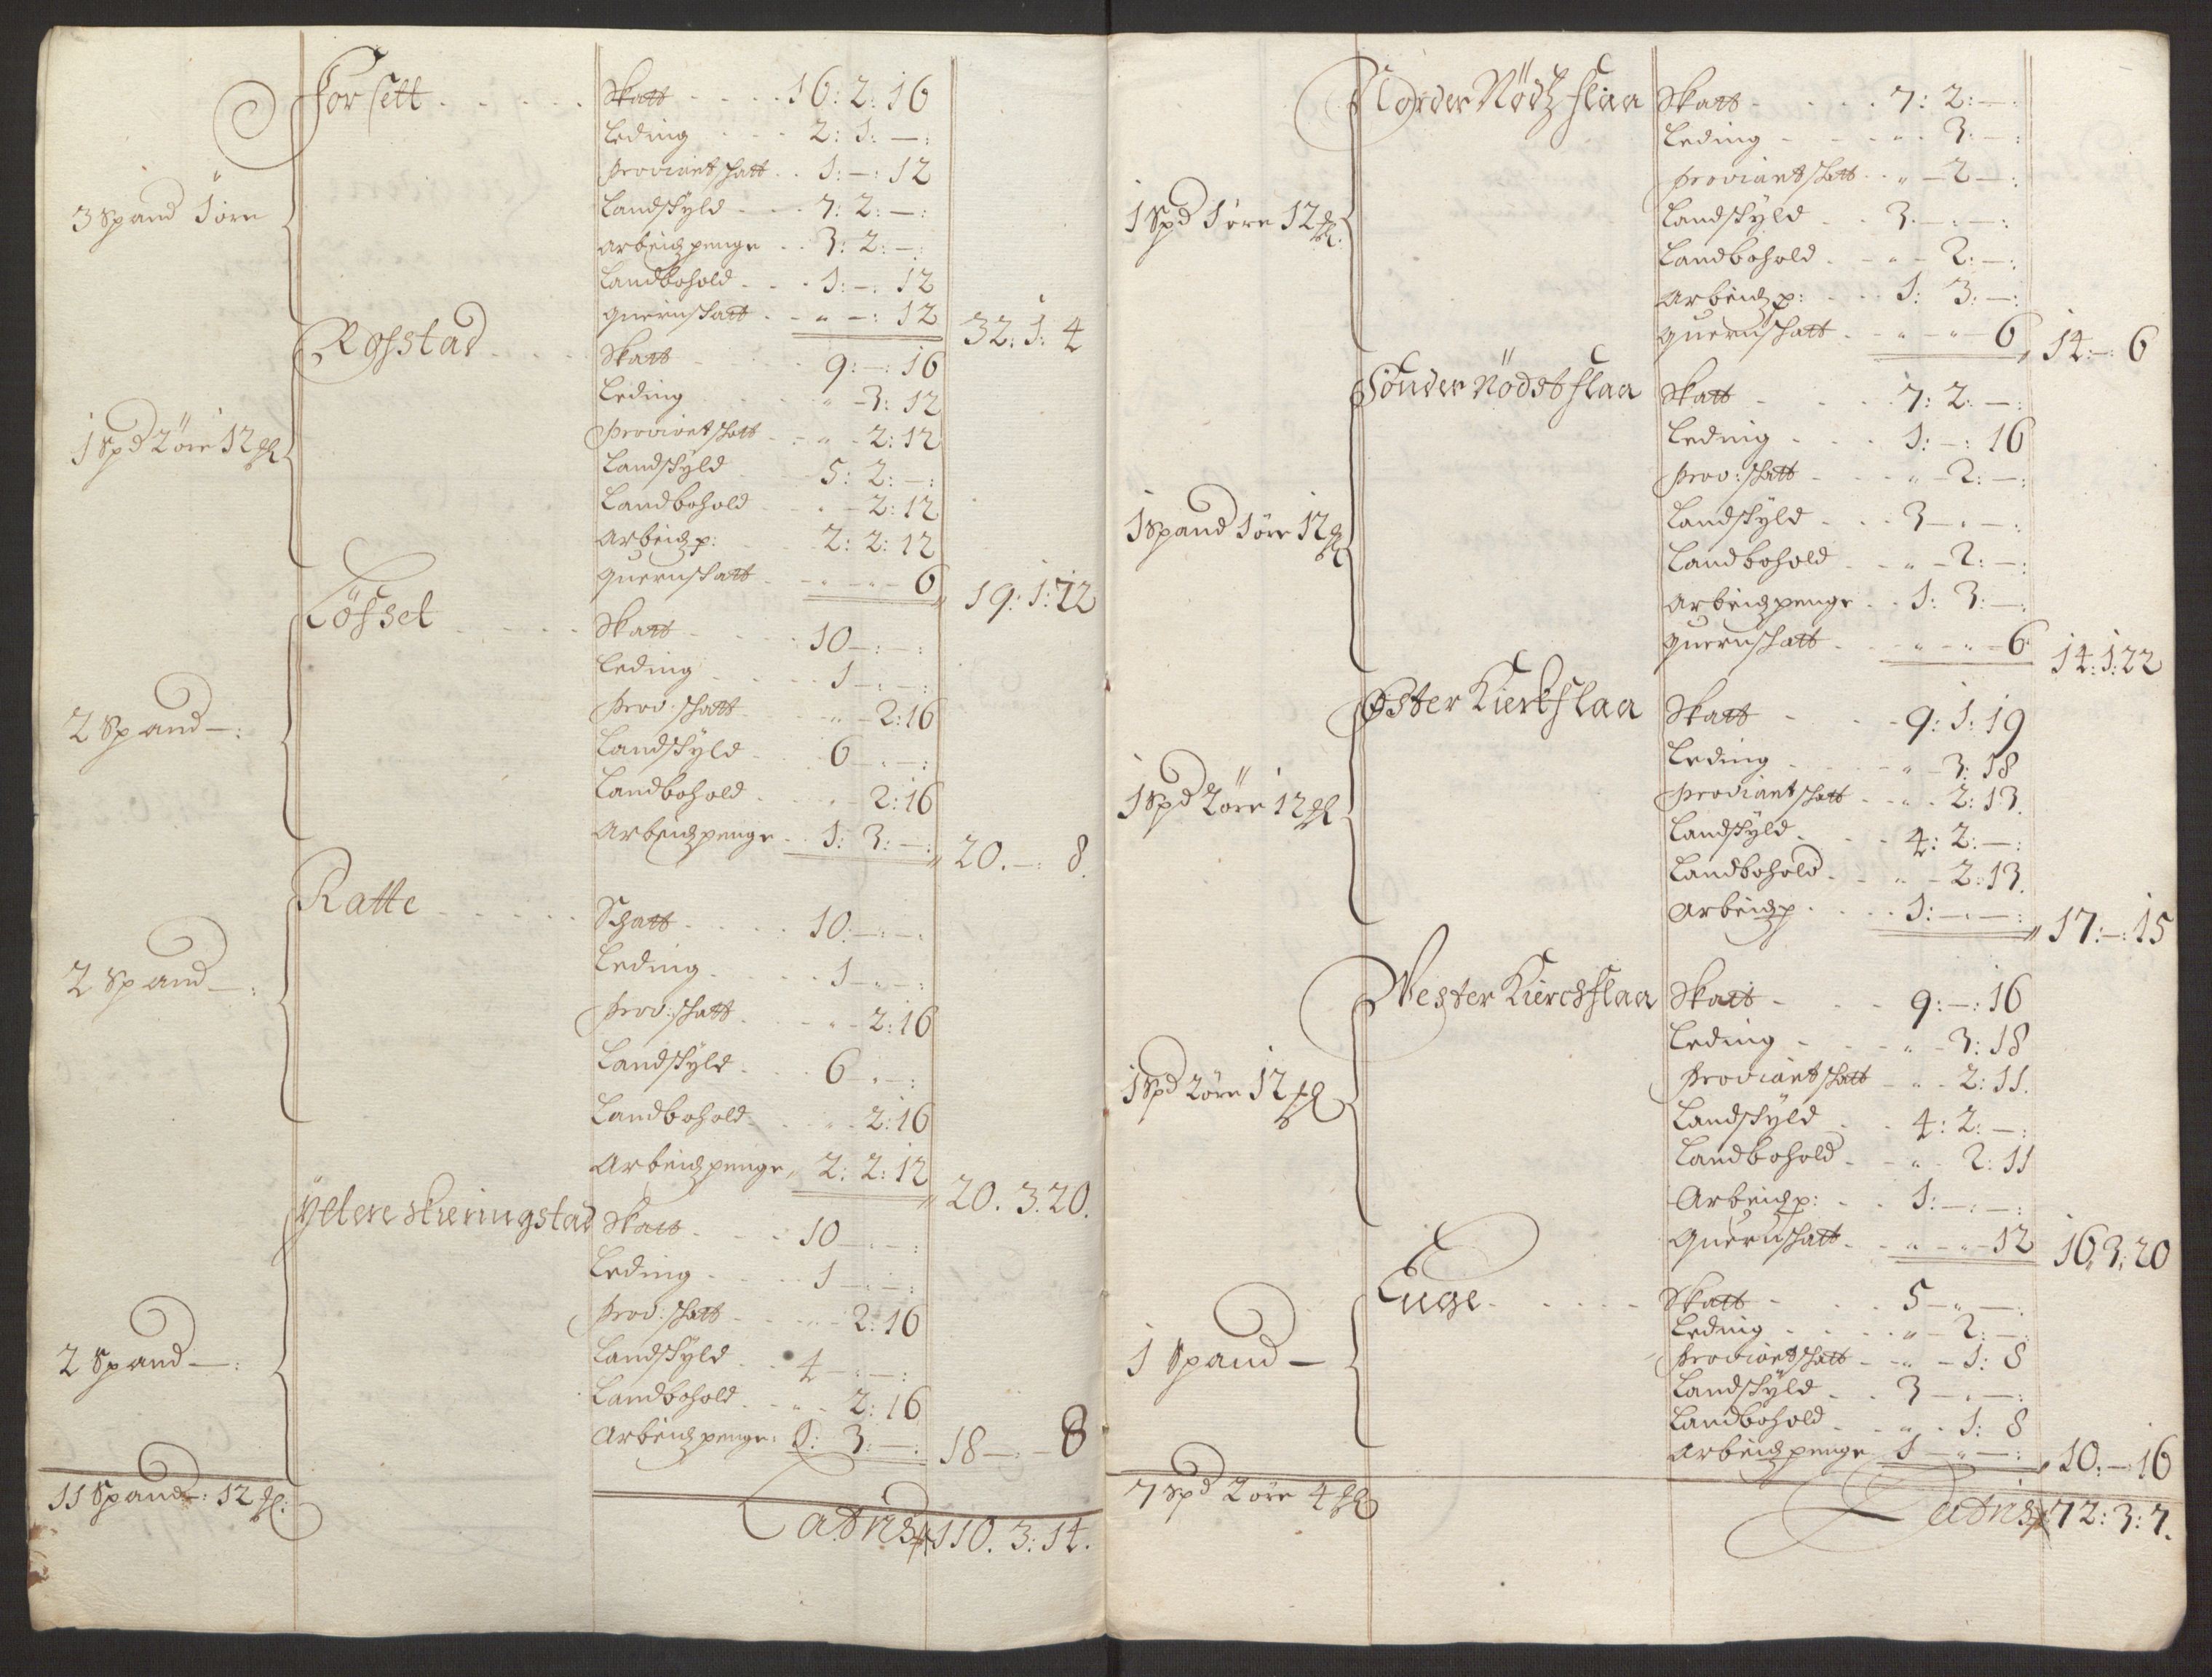 Forsett - - - - - Skatt - - - - 16: 2: 16
Leding - - - - 2: 1: —:
Proviantskatt - - 1: —: 12
3 Spand 1 øre Landskyld - - - 7: 2: —:
Arbeidzpenge - - 3: 2: —:
Landbohold - - - 1: —: 12
Quernskatt - - „ —: 12 32: 1: 4
Rosstad - - - - Skatt - - - - 9: —: 16
Leding - - - - „ - 3: 12
1 Spd 2 øre 12 Proviantskatt - - „ - 2: 12
Landskyld - - 5: 2: —:
Landbohold - - - - 2: 12
Arbeidzp: - - 2: 2: 12
Quernskatt - - „ - „ - 6 19: 1: 22
Lösset - - - - - Skatt - - - - 10 —: —:
Leding - - - - 1 —: —:
Prov: skatt - - „ - 2: 16
2 Spand —: Landskyld - - - 6 —: —:
Landbohold - - „ - 2: 16
Arbeidzpenge - - 1: 3: —: 20. —: 8.
Ratte - - - - - Schatt - - - - 10: —: —:
Leding - - - - 1 —: —:
2 Spand —: Prov: skatt - - „ - 2: 16
Landskyld - - - 6 —: —:
Landbohold - - „ - 2: 16
Arbeidzpenge, 2: 2: 12 20. 3. 20.
Yttere skieringstad Skatt - - - - 10 —: —:
Leding - - - - 1 —: —:
Prov: skatt - - „ - 2: 16
2 Spand —: Landskyld - - 4 —: —:
Landbohold - - „ - 2: 16
Arbeidzpenge: 1: 3: —: 18 —: — 8
11 Spand —: 12
Latris 110. 3: 14.
Norder Nödtzflaa Skatt - - - - 7: 2: —:
Leding - - - - „ - 3: —:
Proviantskatt - - „ - 2 —:
1 Spd 1 øre 12 Landskyld - - 3. —: —:
Landbohold - - „ - 2: —:
Arbeidzp: - - - 1: 3: —:
Quernskatt - - „ - „ - 6 14: —: 6
Sönder Nödstflaa Skatt - - - - 7: 2: —:
Leding - - - 1: —: 16
Prov: skatt - - „ - 2: —:
1 Spand 1 øre 12 Landskyld - - - 3 —: —:
Landbohold - - „ - 2: —:
Arbeidzpenge - - 1: 3: —:
Quernskatt - - „ - „ - 6 14: 1: 22
Øster Kierkflaa Skatt - - - 9: 1: 19
Leding - - - - „ - 3: 18
Proviantskatt - - „ - 2: 13.
1 Spd 2 øre 12 Landskyld - - - 4: 2: —:
Landbohold - - „ - 2: 13.
Arbeidzp - - - - 1: —: —: 17: —: 15
Wester Kierchflaa Skatt - - - 9: —: 16
Leding - - - „ - 3: 18
Proviantskatt - - „ - 2: 11.
1 Spd 2 øre 12 Landskyld - - 4: 2: —:
Landbohold - - „ - 2: 11
Arbeidzp: - - 1: —: —:
Quernskatt - - „ - „ - 12 16: 3: 20
Enge - - - - - Skatt - - - 5 —: —:
Leding - - - - „ - 2: —:
1 Spand — Proviantskatt - - „ - 1: 8
Landskyld - - 3 —: —:
Landbohold - - „ - 1: 8
Arbeidzpenge 1 —: —: 10: —: 16
7 Spd 2 øre 4
Latris 72: 3: 7.